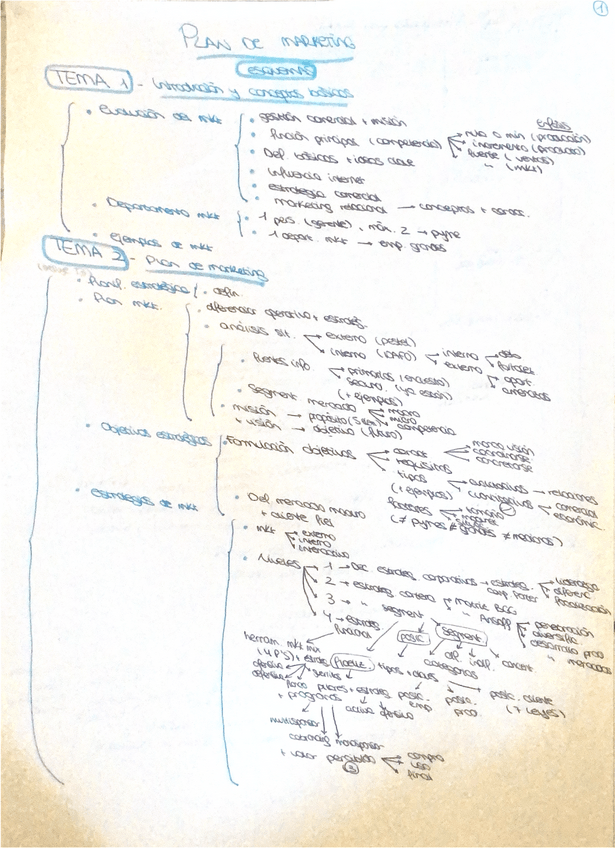 1
PLAN DE MARKETING
ESQUEMAS
TEMA 1 - Introducción y conceptos básicos
• Evolución del mkt
• gestión comercial + misión
• función principal (competencia)
Enfoques
nula o mín (producción)
incremento (producto)
fuerte (ventas)
" (mkt)
• Def. básicas + ideas clave
• influencia internet
• estrategia comercial
• marketing relacional → conceptos + caract.
• Departamento mkt
• 1 pers. (gerente), mín. 2 → pyme
• 1 depart. mkt → emp. grandes
• Ejemplos de mkt
TEMA 2 - Plan de marketing
• Planif. estratégica
• defin.
• Plan mkt.
• diferenciar operativo + estratég.
• análisis sit.
externo (pestel)
interno (DAFO)
interno
externo
deb.
fortalez.
oport.
amenazas
• fuentes info.
primarias (encuesta)
secund. (ya están)
(+ ejemplos)
• Segment mercado
macro
micro
• misión → propósito
competencia
+ visión → objetivo (futuro)
• Objetivos estratégicos
• Formulación objetivos
caract.
marco visión
coordinarse
concretarse
requisitos
tipos
(+ ejemplos)
cualitativos → relaciones
cuantitativos
comercial
económic.
factores
tamaño
(≠ pymes ≠ grandes ≠ medianas)
• Estrategias de mkt
• Def mercado maduro
+ cliente fiel
• mkt
externo
interno
interactivo
• Niveles
1 → Dec. estrateg. corporativas → estrateg. comp. Porter
liderazgo
diferenc.
focalización
2 → estrateg. cartera
matriz BCG
" Ansoff
penetración
diversific.
desarrollo prod
" mercados
3 → " segment
4 → estrateg. funcional
posic.
segment
herram. mkt mix
(4 P's) + estrat.
fideliz.
tipos + claves
categorías
caract.
ofensiva
defensiva
+ programas
posic.
emp
posic.
prod
posic. cliente
(7 leyes)
activa
multisponsor
+ valor percibido
compra
uso
final